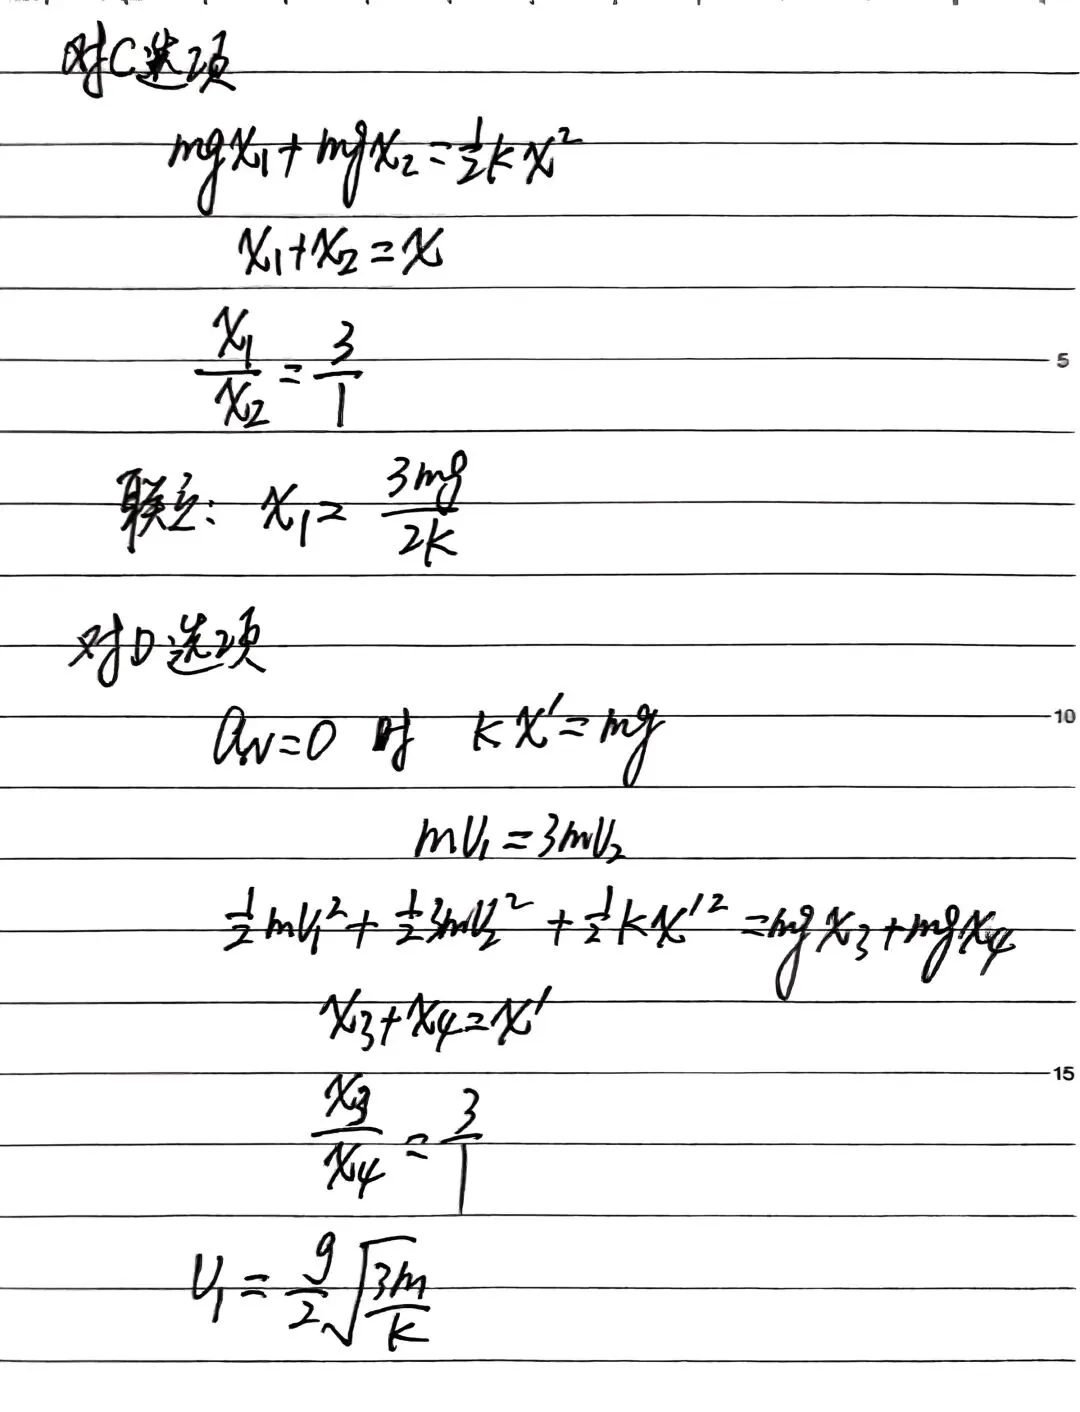 对C选项
mgx₁+mgx₂=½kx²
x₁+x₂=x
x₁/x₂=3/1
5
联立: x₁=3mg/2k
对D选项
10
a_N=0 时 kx'=mg
mv₁=3mv₂
½mv₁²+½3mv₂²+½kx'²=mgx₃+mgx₄
x₃+x₄=x'
15
x₃/x₄=3/1
v₁=g/2√(3m/k)